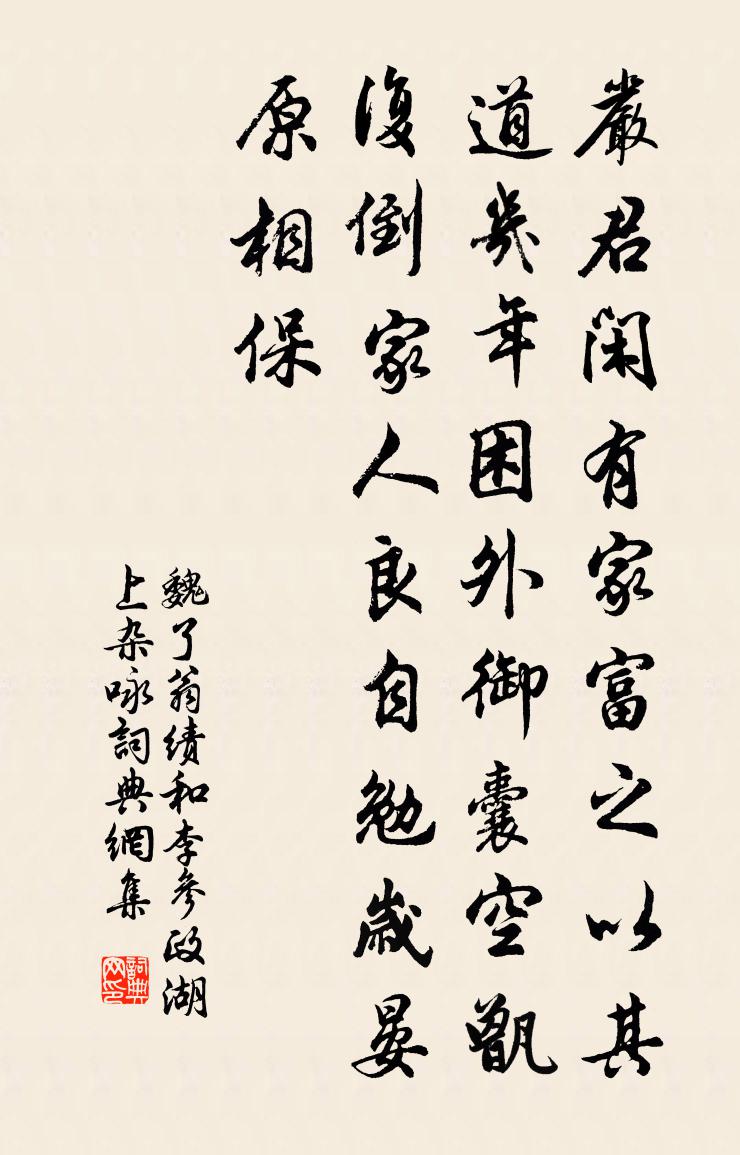 嚴君閑有家富之以其
道幾年困外御囊空甑
復倒家人良自勉歲晏
原相保
魏了翁續和李參政湖
上杂咏詞典網集
詞典网印